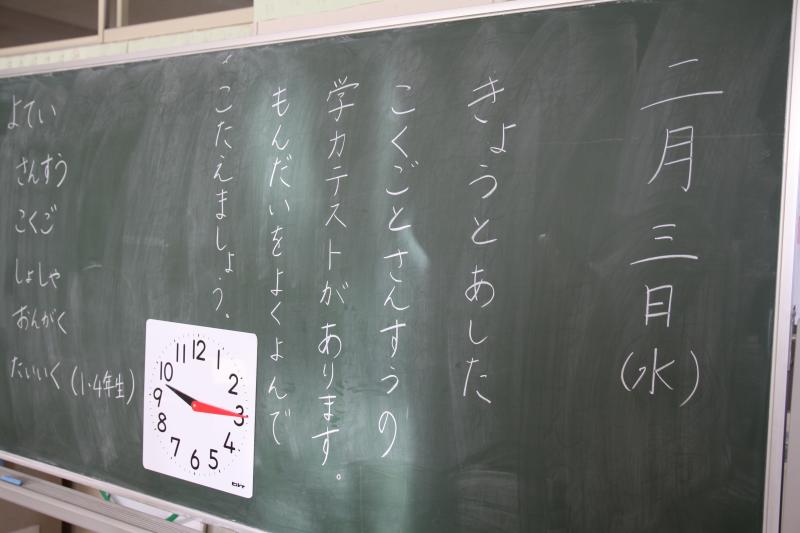 二月三日(水)
きょうとあした
こくごとさんすうの
学力テストがあります。
もんだいをよくよんで
こたえましょう。
よてい
さんすう
こくご
しょしゃ
おんがく
たいいく(1・4年生)
12
1
2
3
4
5
6
7
8
9
10
11